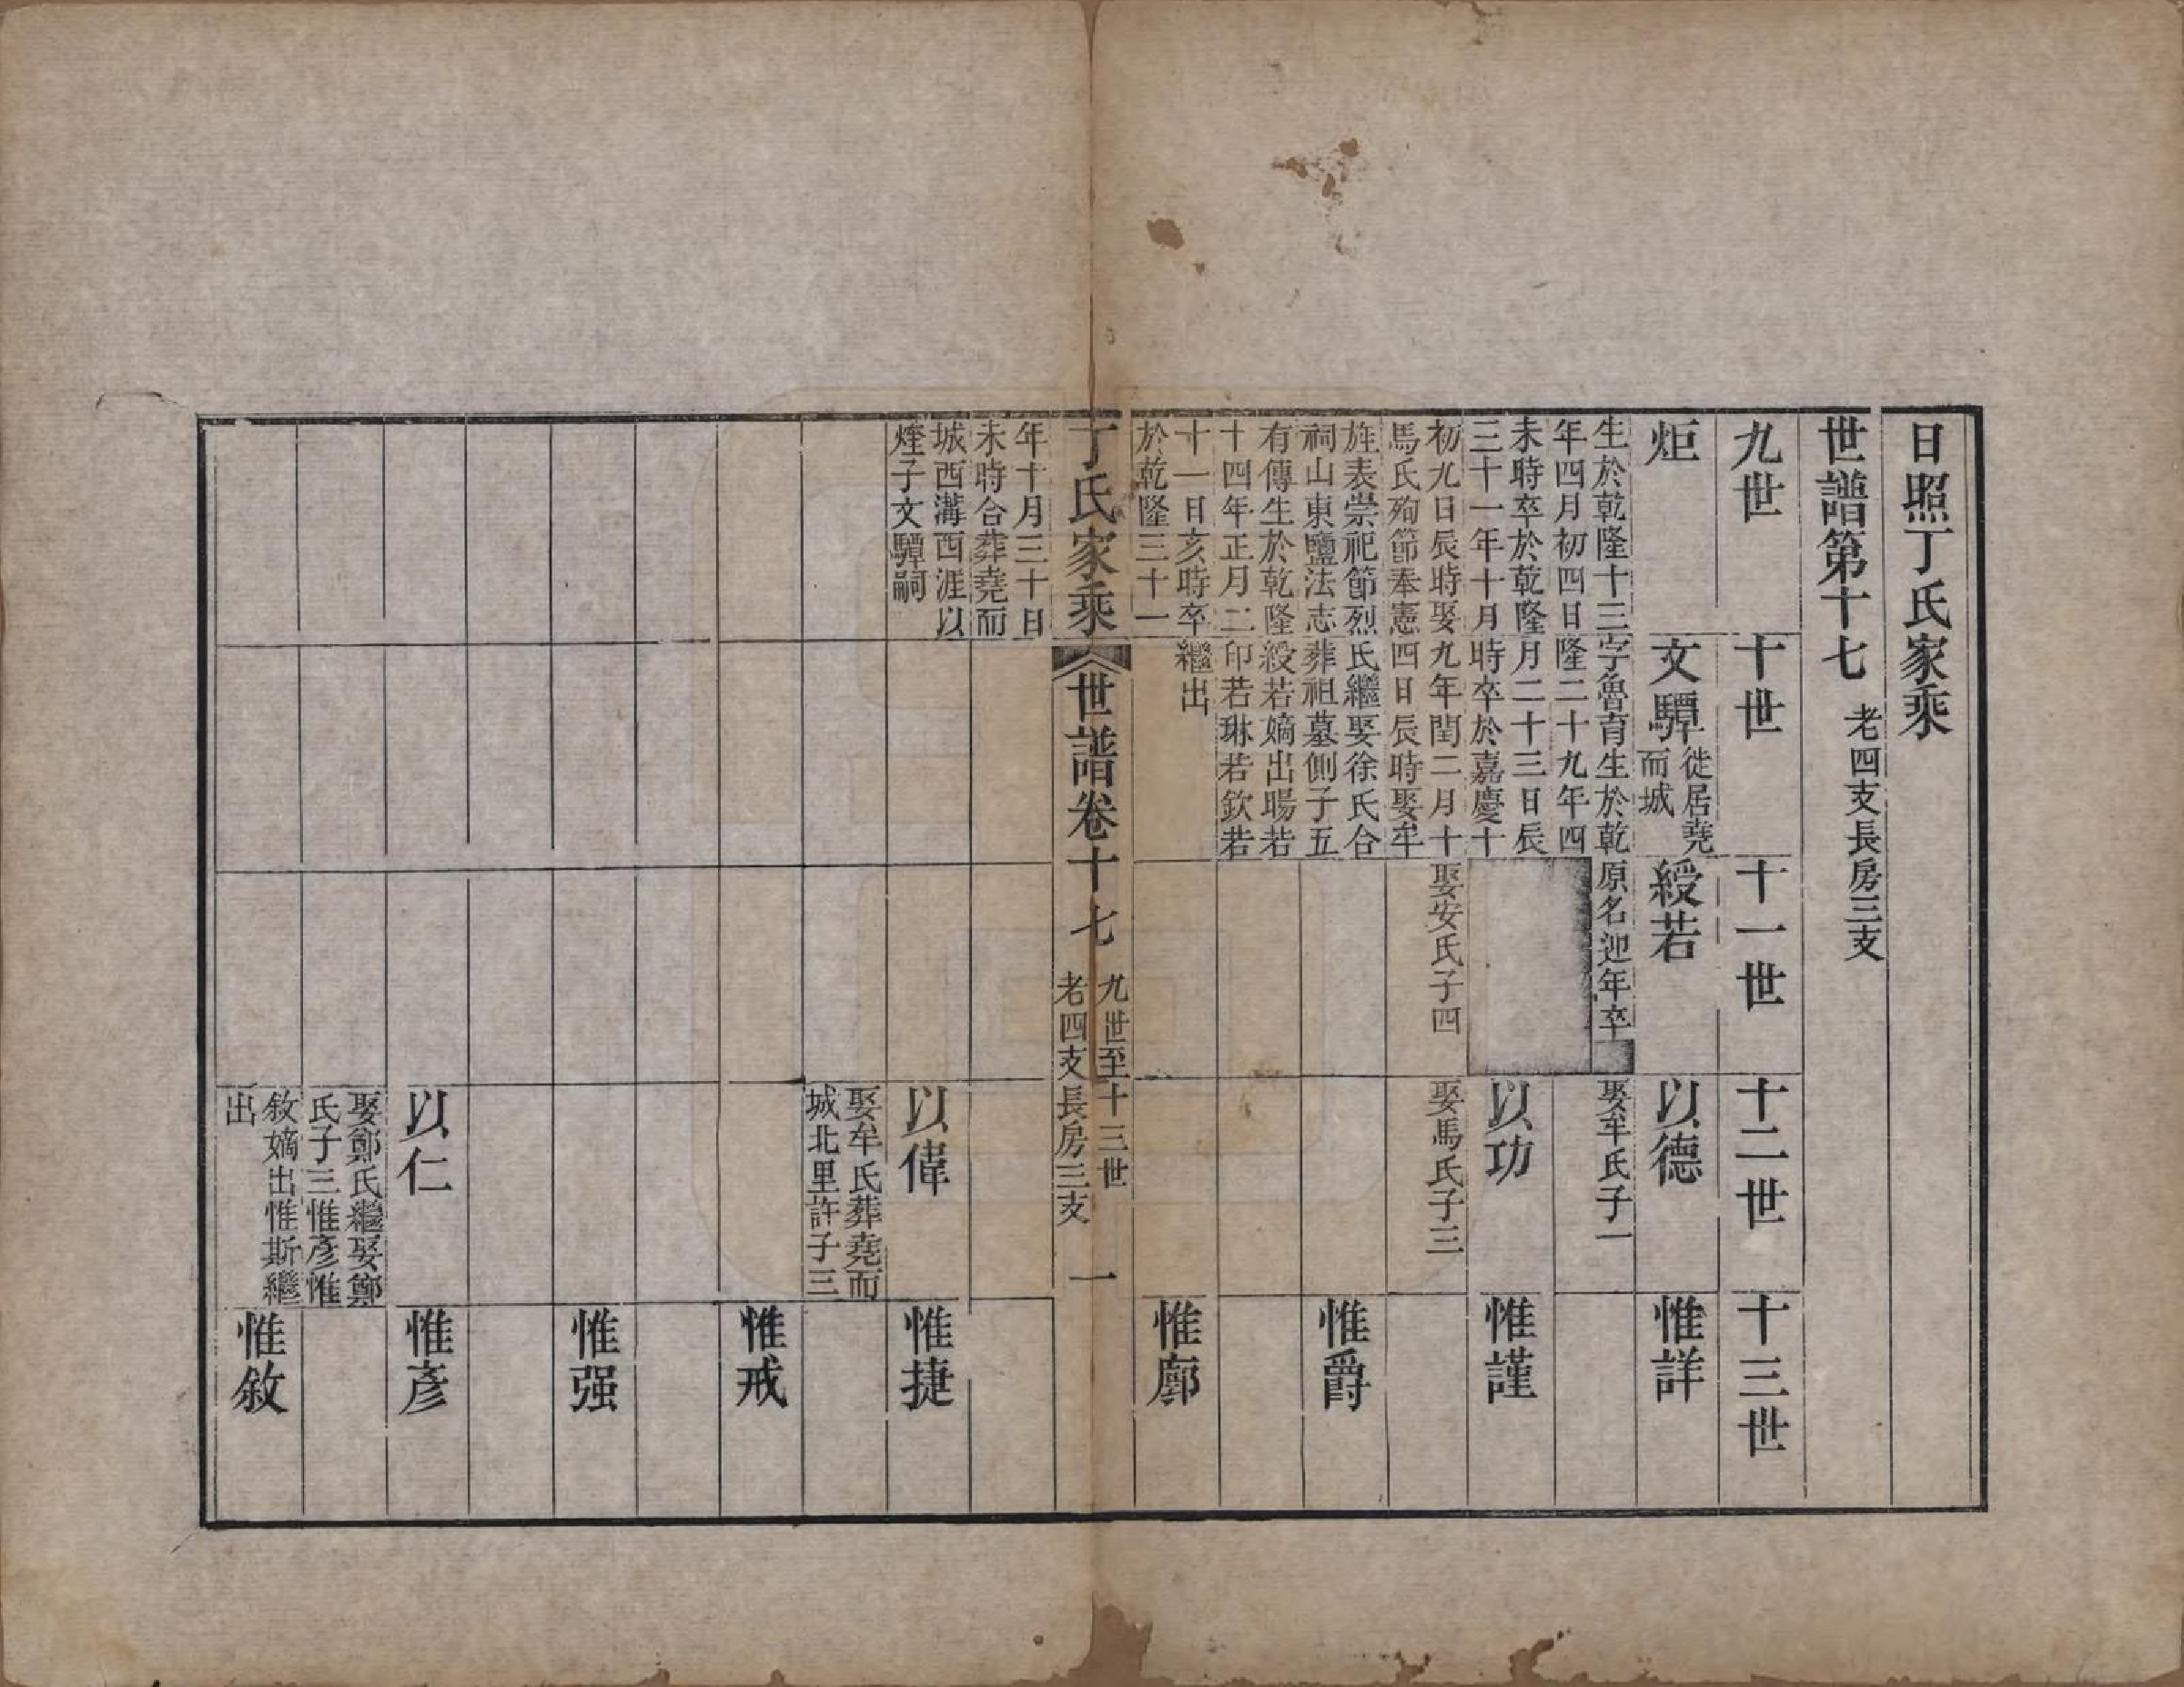 日照丁氏家乘
世譜第十七 老四支長房三支
九世
十世
十一世
十二世
十三世
炬
生於乾隆十三
年四月初四日
未時卒於乾隆
三十一年十月
初九日辰時娶
馬氏殉節奉憲
旌表崇祀節烈
祠山東鹽法志
有傳生於乾隆
十四年正月二
十一日亥時卒
於乾隆三十一
年十月三十日
未時合葬堯而
城西溝西涯以
煃子文驔嗣
文驔 徙居堯
而城
字魯育生於乾
隆二十九年四
月二十三日辰
時卒於嘉慶十
九年閏二月十
四日辰時娶牟
氏繼娶徐氏合
葬祖墓側子五
綬若嫡出暘若
印若琳若欽若
繼出
綬若
原名迎年卒
娶安氏子四
以德
娶牟氏子一
惟詳
以功
娶馬氏子三
惟謹
惟爵
惟廓
丁氏家乘
世譜卷十七
九世至十三世
老四支長房三支
一
以偉
娶牟氏葬堯而
城北里許子三
惟捷
惟戒
惟强
以仁
娶鄭氏繼娶鄭
氏子三惟彥惟
敘嫡出惟斯繼
出
惟彥
惟敘